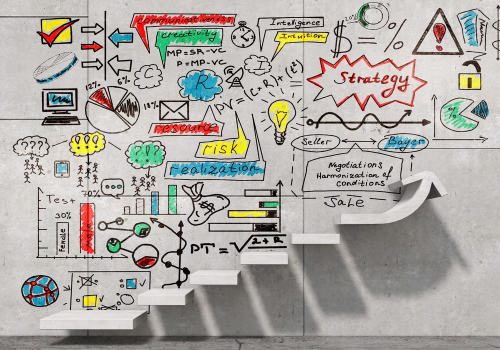 communication
creativity
MP=SR-VC
P=MP-VC
Inteligence
Intuition
$=%
Strategy
12%
6%
C
R
18%
PV=(C+R)+(t²)
resourse
risk
realization
Seller
Buyer
Negotiations
Harmonization of
conditions
Sale
???
!!!
Test
70%
30%
Female
Male
$
PT=√2+R
%